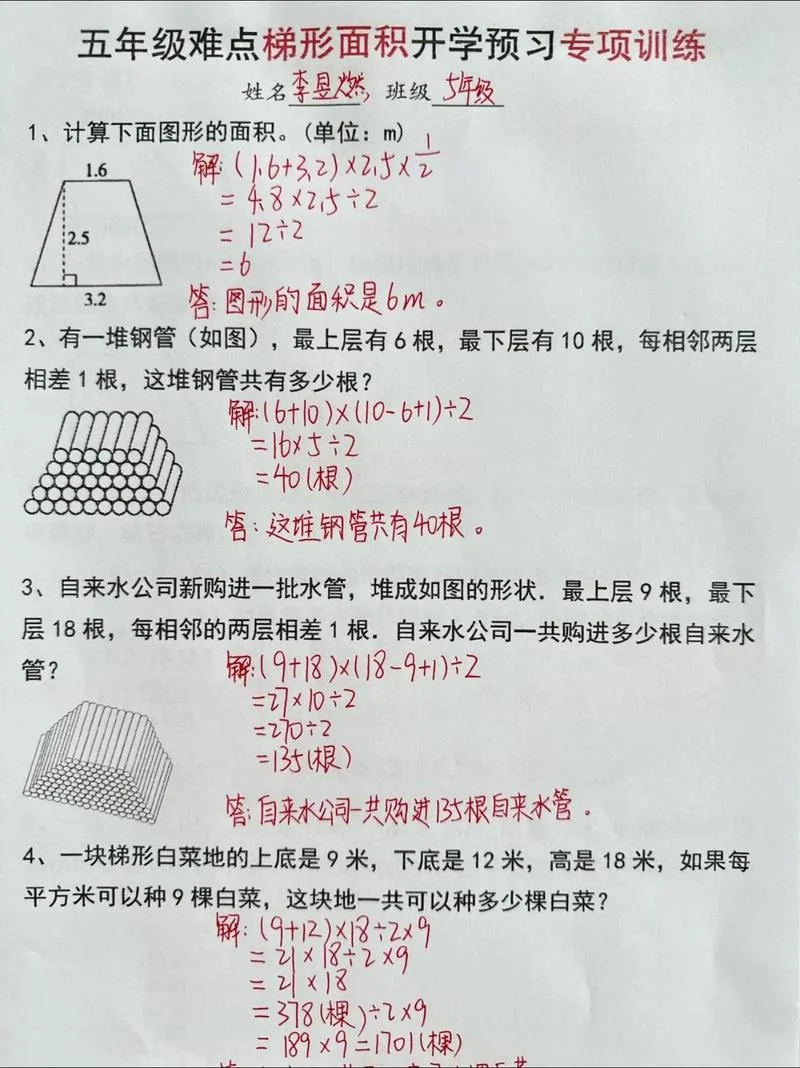 五年级难点梯形面积开学预习专项训练
姓名李昱燃 班级5年级
1、计算下面图形的面积。(单位：m)
1.6
2.5
3.2
解:(1.6+3.2)×2.5×1/2
=4.8×2.5÷2
=12÷2
=6
答:图形的面积是6m。
2、有一堆钢管（如图），最上层有6根，最下层有10根，每相邻两层
相差1根，这堆钢管共有多少根？
解:(6+10)×(10-6+1)÷2
=16×5÷2
=40(根)
答:这堆钢管共有40根。
3、自来水公司新购进一批水管，堆成如图的形状．最上层9根，最下
层18根，每相邻的两层相差1根．自来水公司一共购进多少根自来水
管？
解:(9+18)×(18-9+1)÷2
=27×10÷2
=270÷2
=135(根)
答:自来水公司一共购进135根自来水管。
4、一块梯形白菜地的上底是9米，下底是12米，高是18米，如果每
平方米可以种9棵白菜，这块地一共可以种多少棵白菜？
解:(9+12)×18÷2×9
=21×18÷2×9
=21×18
=378(棵)÷2×9
=189×9=1701(棵)